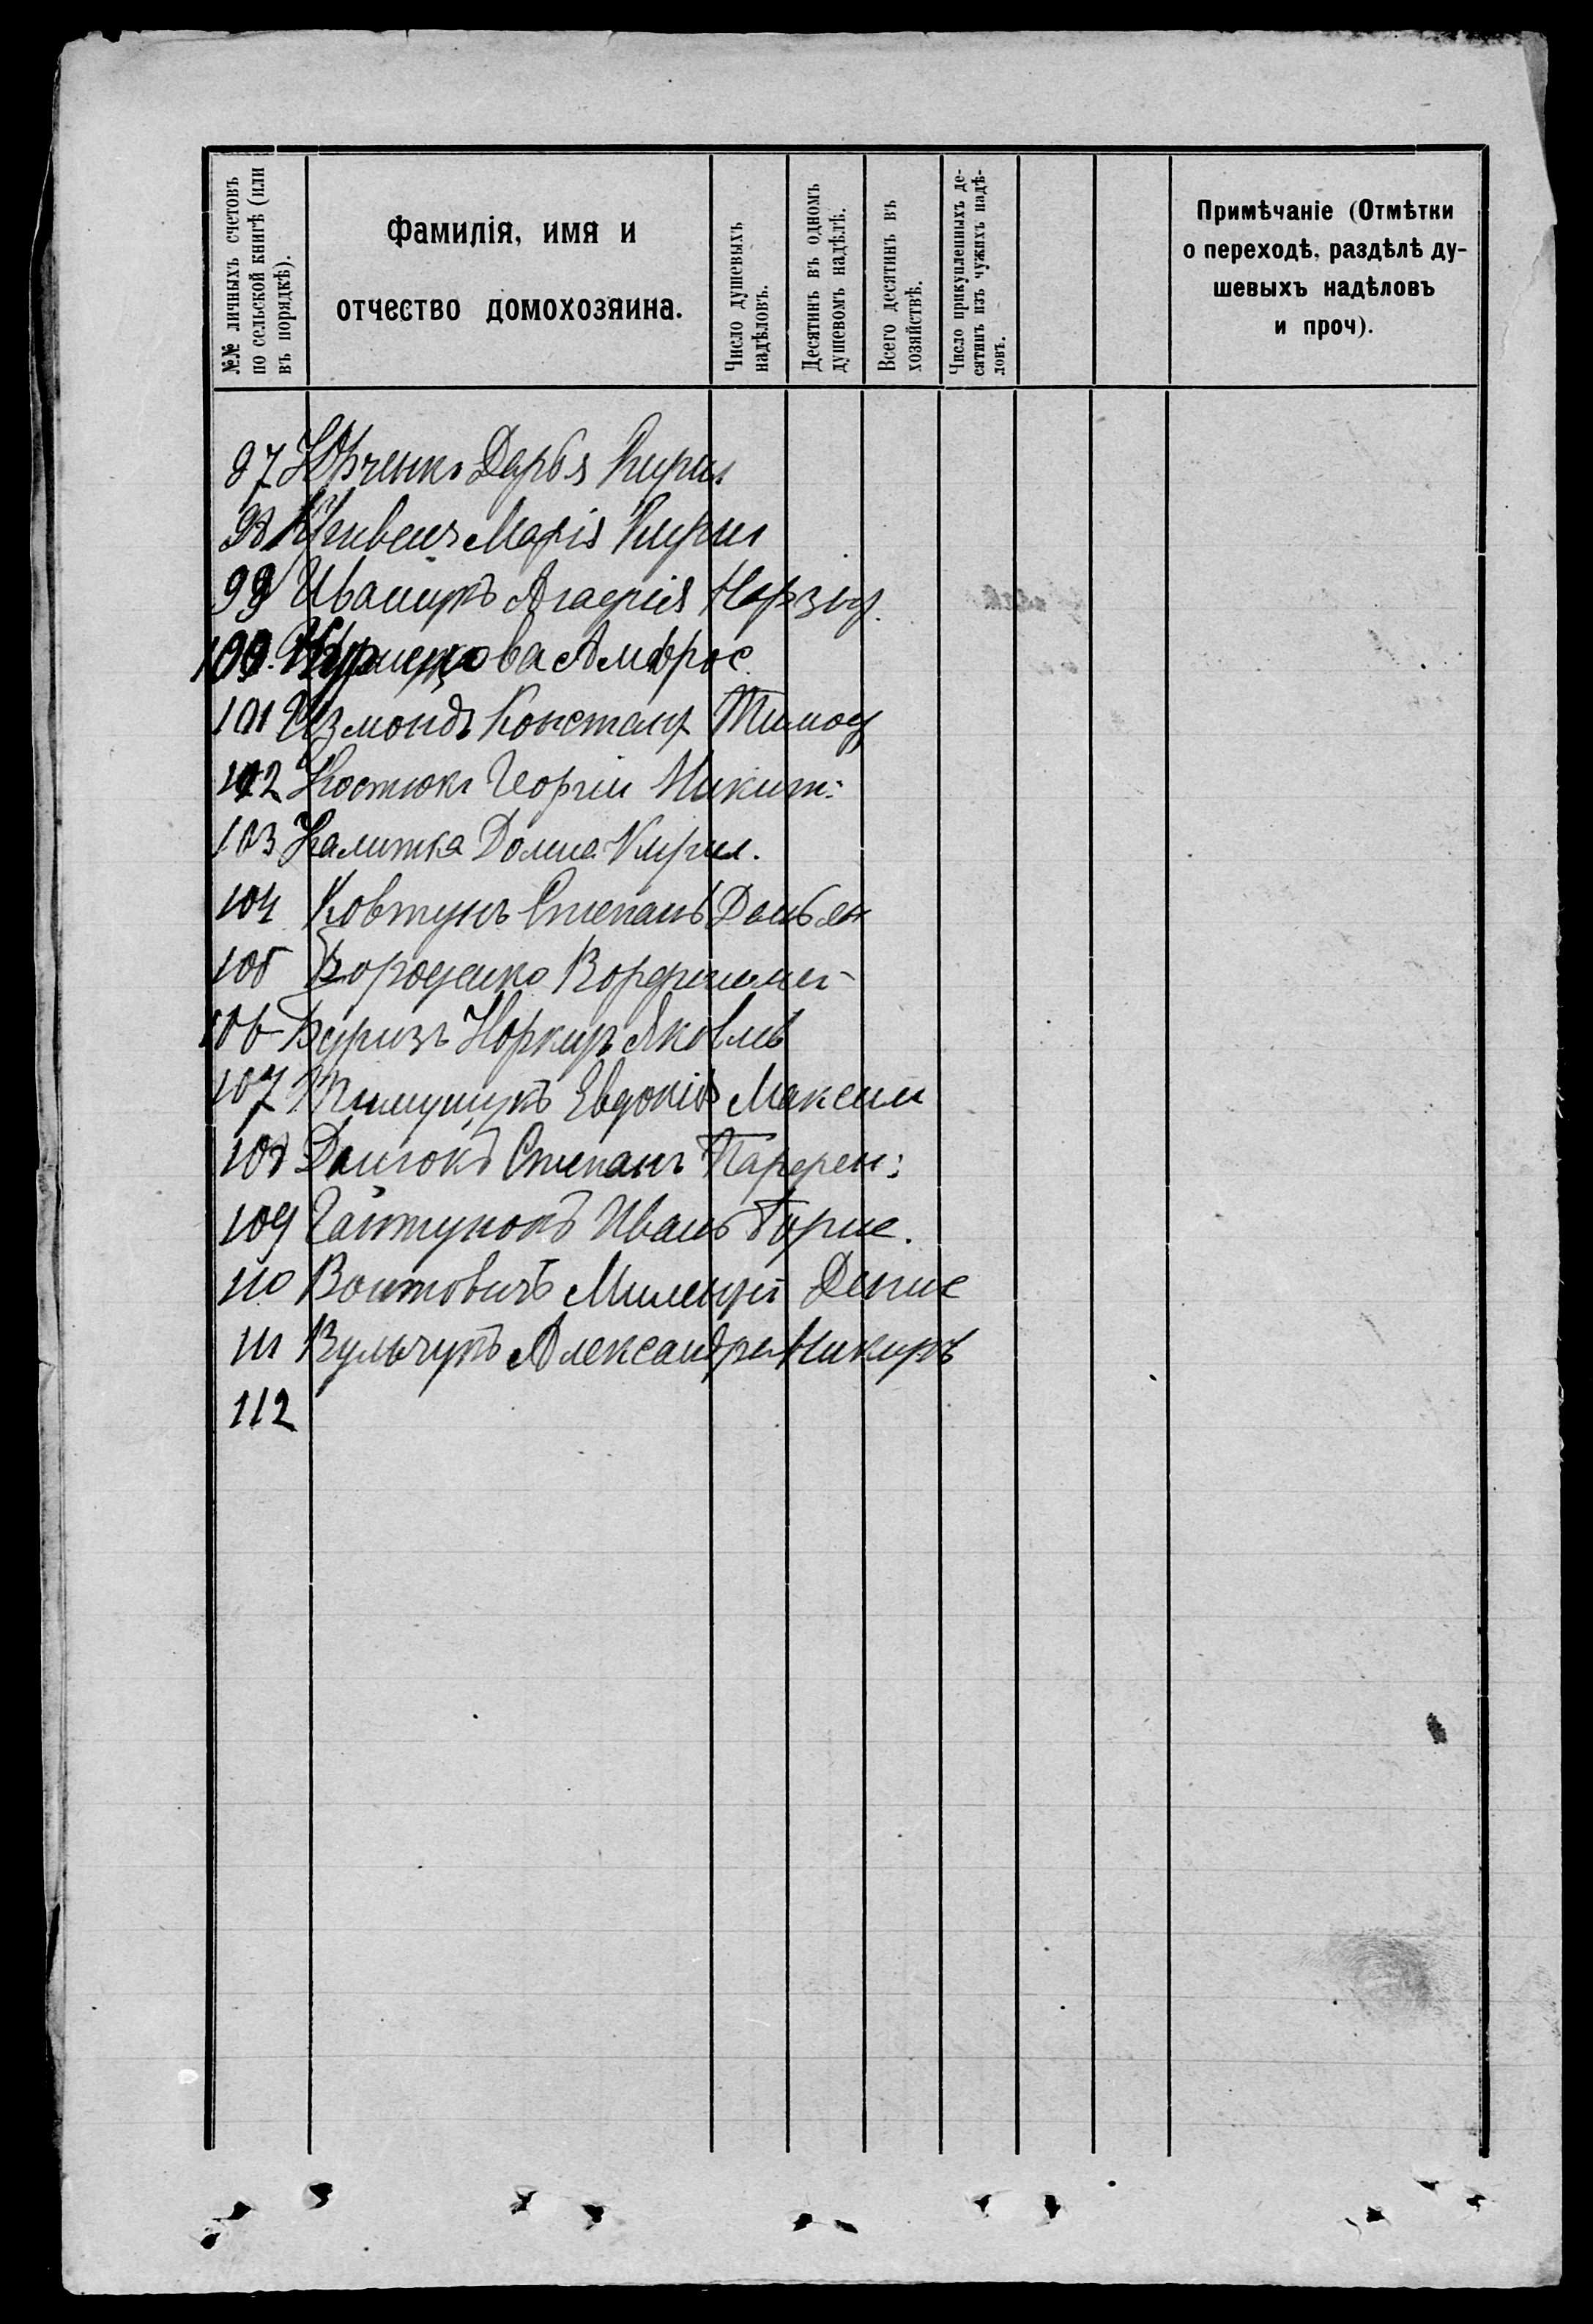 №№ личныхъ счетовъ по сельской книгѣ (или въ порядкѣ).
Фамилія, имя и отчество домохозяина.
Число душевыхъ надѣловъ.
Десятинъ въ одномъ душевомъ надѣлѣ.
Всего десятинъ въ хозяйствѣ.
Число прикупленныхъ десятинъ изъ чужихъ надѣловъ.
Примѣчаніе (Отмѣтки о переходѣ, раздѣлѣ душевыхъ надѣловъ и проч).
97 Юрченко Дарья Кирил
98 Марія Кирил
99 Иващукъ Агафія
100. Амврос
101 Измондъ Констант Тимоф
102 Костюкъ Георгіи Никит:
103 Калитка Домна Кирил.
104 Ковтунъ Степанъ Демьян
105 Бороденко Варфоломе
106 Яковлев
107 Тимущукъ Евдокія Максим
108 Степанъ Парфен:
109 Иванъ Борис.
110 Воитовичъ Милентій Денис
111 Вульчукъ Александра Никифъ
112